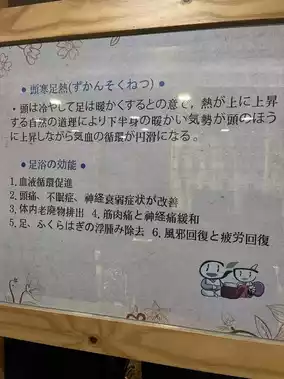 • 頭寒足熱(ずかんそくねつ) •
・頭は冷やして足は暖かくするとの意で，熱が上に上昇
する自然の道理により下半身の暖かい気勢が頭のほう
に上昇しながら気血の循環が円滑になる。
• 足浴の効能 •
1.血液循環促進
2.頭痛、不眠症、神経衰弱症状が改善
3.体内老廃物排出 4.筋肉痛と神経痛緩和
5.足、ふくらはぎの浮腫み除去 6.風邪回復と疲労回復